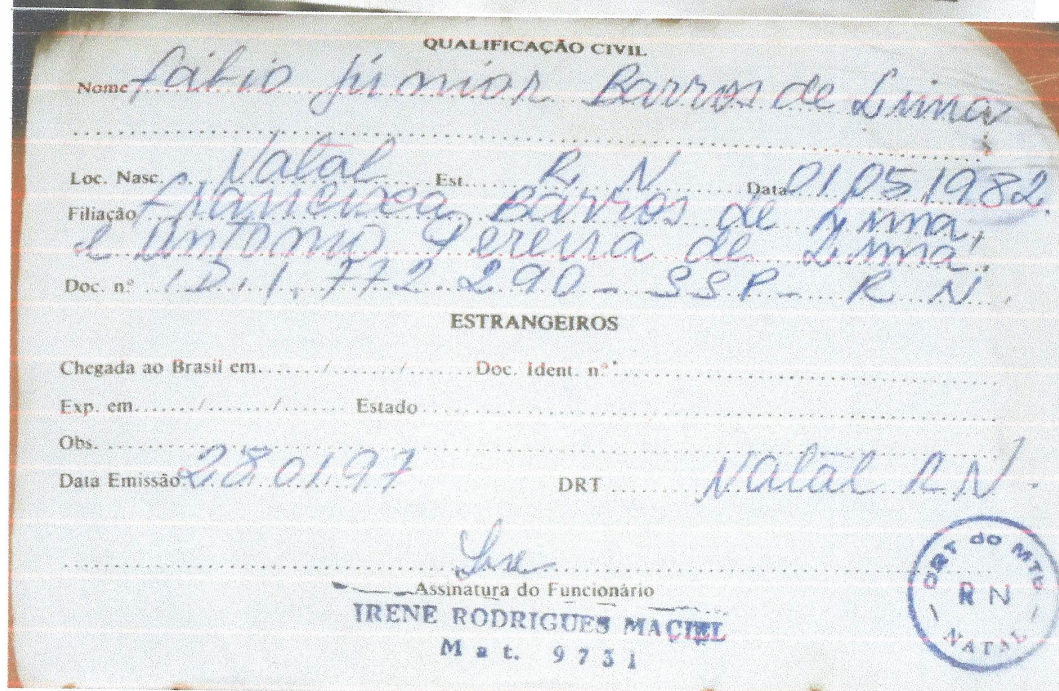 QUALIFICAÇÃO CIVIL
Nome Fábio Júnior Barros de Lima
Loc. Nasc. Natal Est. R N Data 01 05 1982
Filiação Francisca Barros de Lima,
e Antonio Pereira de Lima.
Doc. n.º I.D. 1.772.290 - SSP - R N.
ESTRANGEIROS
Chegada ao Brasil em ....../....../...... Doc. Ident. n.º
Exp. em ....../....../...... Estado
Obs.
Data Emissão 28.01.97 DRT Natal RN.
Assinatura do Funcionário
IRENE RODRIGUES MACIEL
Mat. 9731
DRT do MTb
RN
NATAL